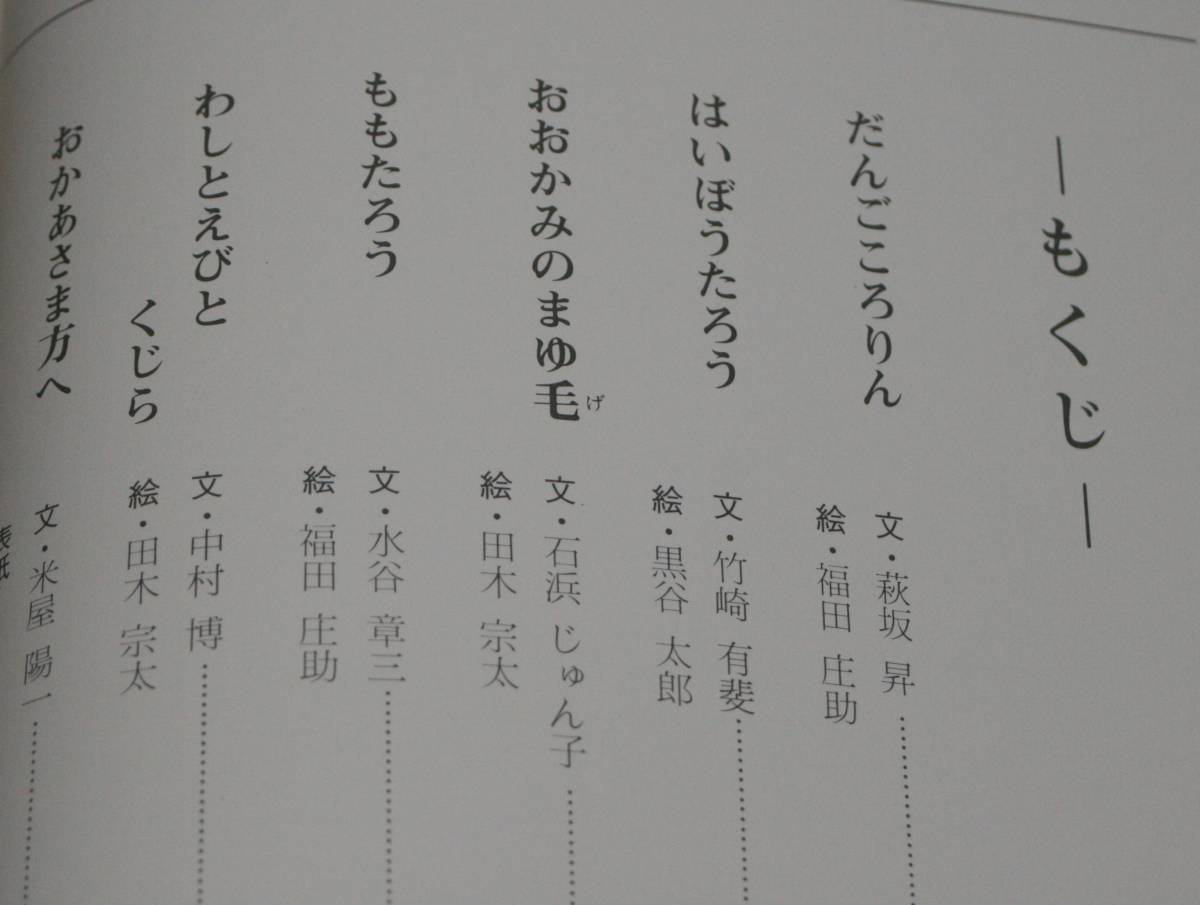 ―もくじ―
だんごころりん
文・萩坂 昇
絵・福田 庄助
はいぼうたろう
文・竹崎 有斐
絵・黒谷 太郎
おおかみのまゆ毛
げ
文・石浜 じゅん子
絵・田木 宗太
ももたろう
文・水谷 章三
絵・福田 庄助
わしとえびと
くじら
文・中村 博
絵・田木 宗太
おかあさま方へ
文・米屋 陽一
表紙